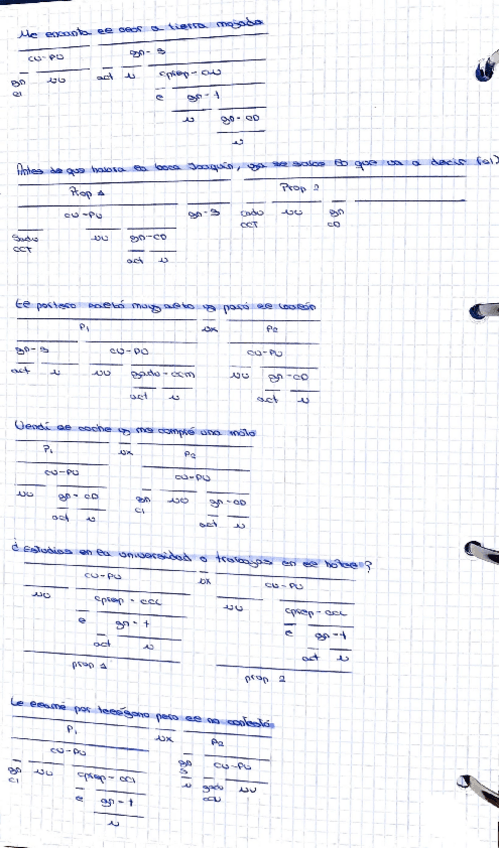 Me encanta el olor a tierra mojada
CV-PV gn-S
gn nv act n cprep-CN
CI e gn-t
n gn-CD
n
Antes de que hablara la boca Joaquín, ya se sabe lo que va a decir
Prop 1 Prop 2
CV-PV gn-S cadv nv gn
Sadv nv gn-CD CCT CD
CCT act n
El portero saltó muy alto y paró el balón
P1 nx P2
gn-S CV-PV CV-PV
act n nv gadv-CCM nv gn-CD
act n act n
Vendí el coche y me compré una moto
P1 nx P2
CV-PV CV-PV
nv gn-CD gn nv gn-CD
act n CI act n
¿Estudias en la universidad o trabajas en el hotel?
CV-PV nx CV-PV
nv cprep-CCL nv cprep-CCL
e gn-t e gn-t
act n act n
prop 1 prop 2
Le llamé por teléfono pero él no contestó
P1 nx P2
CV-PV gn CV-PV
gn nv cprep-CCI S gadv nv
CI e gn-t n
n